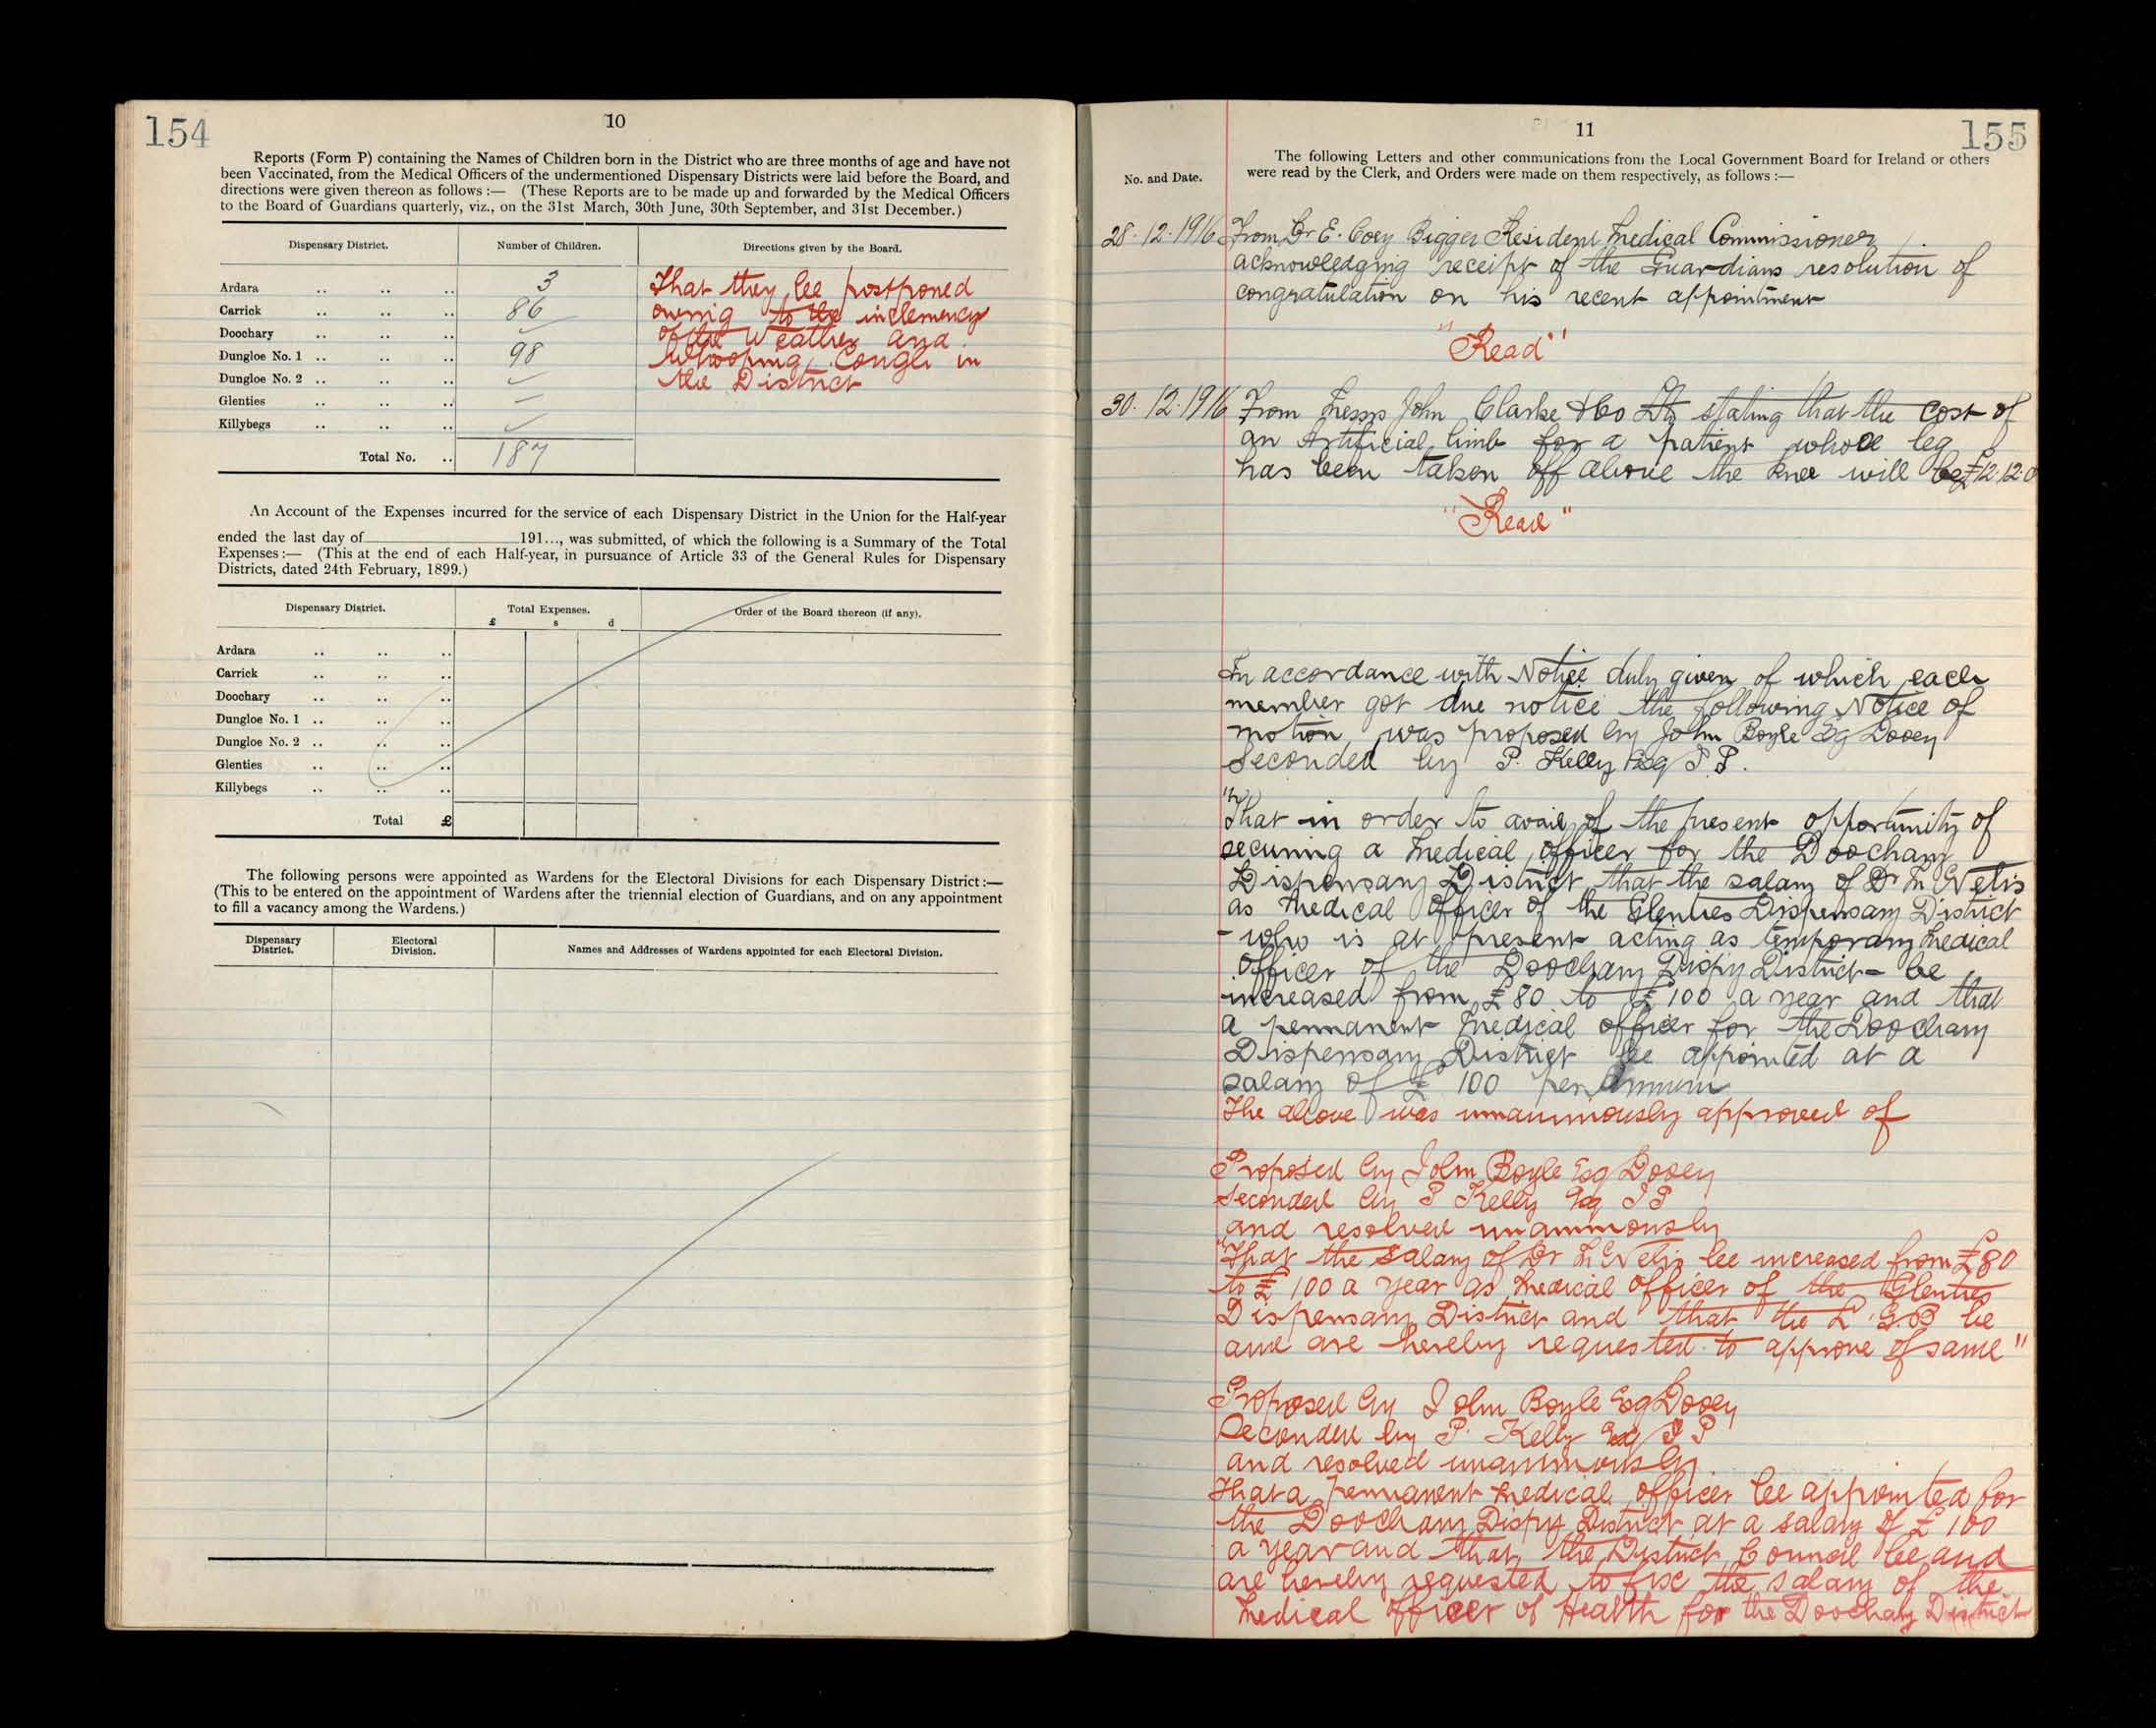 154
10
Reports (Form P) containing the Names of Children born in the District who are three months of age and have not
been Vaccinated, from the Medical Officers of the undermentioned Dispensary Districts were laid before the Board, and
directions were given thereon as follows :— (These Reports are to be made up and forwarded by the Medical Officers
to the Board of Guardians quarterly, viz., on the 31st March, 30th June, 30th September, and 31st December.)
Dispensary District. Number of Children. Directions given by the Board.
Ardara .. .. .. 3 That they be postponed
Carrick .. .. .. 86 owing to the inclemency
Doochary .. .. .. of the Weather and
Dungloe No. 1 .. .. .. 98 Whooping Cough in
Dungloe No. 2 .. .. .. the District
Glenties .. .. ..
Killybegs .. .. ..
Total No. .. 187
An Account of the Expenses incurred for the service of each Dispensary District in the Union for the Half-year
ended the last day of 191..., was submitted, of which the following is a Summary of the Total
Expenses :— (This at the end of each Half-year, in pursuance of Article 33 of the General Rules for Dispensary
Districts, dated 24th February, 1899.)
Dispensary District. Total Expenses. Order of the Board thereon (if any).
£ s d
Ardara .. .. ..
Carrick .. .. ..
Doochary .. .. ..
Dungloe No. 1 .. .. ..
Dungloe No. 2 .. .. ..
Glenties .. .. ..
Killybegs .. .. ..
Total £
The following persons were appointed as Wardens for the Electoral Divisions for each Dispensary District :—
(This to be entered on the appointment of Wardens after the triennial election of Guardians, and on any appointment
to fill a vacancy among the Wardens.)
Dispensary District. Electoral Division. Names and Addresses of Wardens appointed for each Electoral Division.
11
155
The following Letters and other communications from the Local Government Board for Ireland or others
were read by the Clerk, and Orders were made on them respectively, as follows :—
No. and Date.
28.12.1916 From Dr E. Coey Bigger Resident Medical Commissioner
acknowledging receipt of the Guardians resolution of
congratulation on his recent appointment
"Read"
30.12.1916 From Messrs John Clarke & Co Ltd stating that the cost of
an Artificial limb for a patient whose leg
has been taken off above the knee will be £12.12.0
"Read"
In accordance with Notice duly given of which each
member got due notice the following Notice of
motion was proposed by John Boyle Esq Dooey
Seconded by P. Kelly Esq J.P.
"That in order to avail of the present opportunity of
securing a Medical officer for the Doochary
Dispensary District, that the salary of Dr McNelis
as Medical Officer of the Glenties Dispensary District
- who is at present acting as temporary Medical
Officer of the Doochary Dispy District - be
increased from £80 to £100 a year and that
a permanent Medical officer for the Doochary
Dispensary District be appointed at a
salary of £100 per Annum
The above was unanimously approved of
Proposed by John Boyle Esq Dooey
Seconded by P Kelly Esq J P
and resolved unanimously
"That the Salary of Dr McNelis be increased from £80
to £100 a year as Medical Officer of the Glenties
Dispensary District and that the L.G.B be
and are hereby requested to approve of same"
Proposed by John Boyle Esq Dooey
Seconded by P. Kelly Esq J P
and resolved unanimously
That a permanent Medical officer be appointed for
the Doochary Dispy District at a salary of £100
a year and that the District Council be and
are hereby requested to fix the salary of the
Medical Officer of Health for the Doochary District